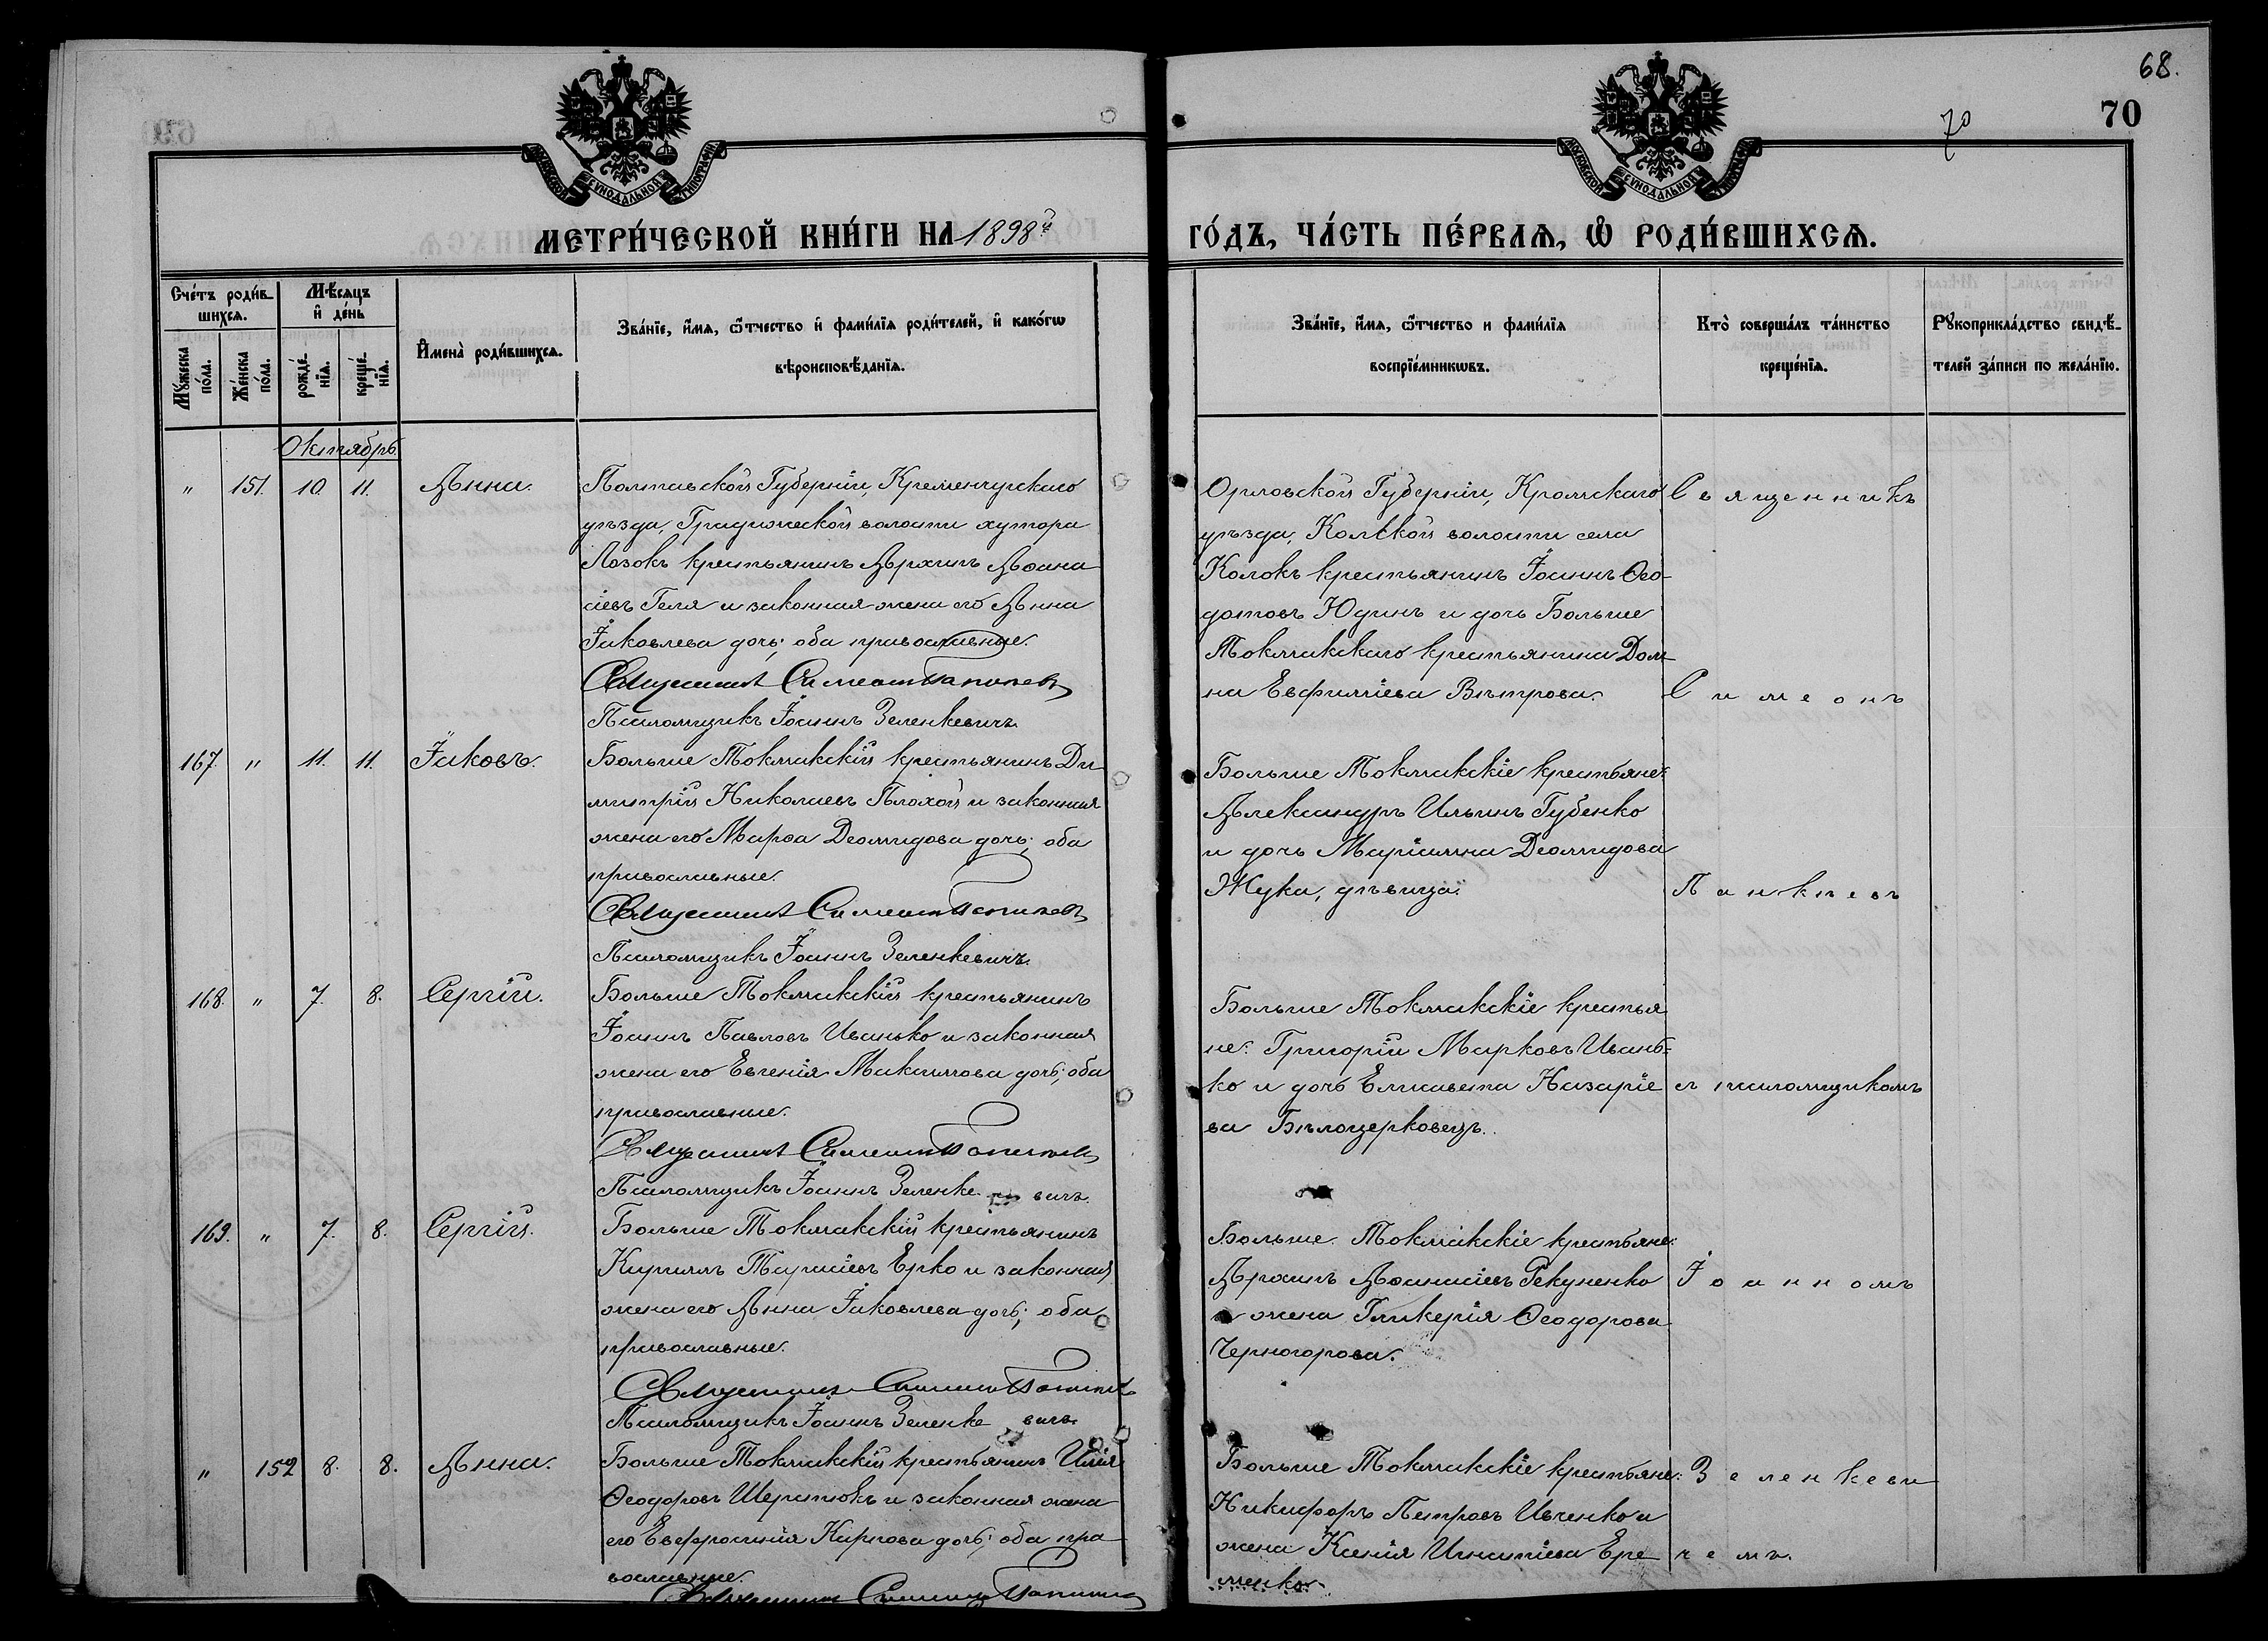 68.
70
70
МОСКОВСКОЙ СѴНОДАЛЬНОЙ ТИПОГРАФІИ
МОСКОВСКОЙ СѴНОДАЛЬНОЙ ТИПОГРАФІИ
МЕТРИ́ЧЕСКОЙ КНИ́ГИ НА 1898й
ГО́ДЪ, ЧА́СТЬ ПЕ́РВАѦ, Ѽ РОДИ́ВШИХСѦ.
Сче́тъ роди́в-
шихсѧ.
Мꙋ́жеска по́ла.
Же́нска по́ла.
Мѣ́сѧцъ
и҆ де́нь
рожде́-
нїѧ.
креще́-
нїѧ.
И҆мена̀ роди́вшихсѧ.
Зва́нїе, и҆́мѧ, ѻ҆́тчество и҆ фами́лїѧ роди́телей, и҆ како́гѡ
вѣроисповѣ́данїѧ.
Зва́нїе, и҆́мѧ, ѻ҆́тчество и фами́лїѧ
воспрїе́мникѡвъ.
Кто̀ соверша́лъ та́инство
креще́нїѧ.
Рꙋкоприкла́дство свидѣ́-
телей за́писи по жела́нїю.
Октябрь
" 151. 10. 11. Анна.
Полтавской Губерніи, Кременчугскаго
уѣзда, Градижской волости хутора
Лозокъ крестьянинъ Архипъ Аѳана-
сіевъ Геля и законная жена его Анна
Іаковлева дочь; оба православные.
Священникъ Симеонъ
Псаломщикъ Іоаннъ Зеленкевичъ.
Орловской Губерніи, Кромскаго
уѣзда, Кол
ской волости села
Колокъ крестьянинъ Іоаннъ Ѳео-
дотовъ Юдинъ и дочь Больше
Токмакскаго крестьянина Дом-
на Евфиміева Вѣтрова.
Священникъ
Симеонъ
167. " 11. 11. Іаковъ.
Больше Токмакскій крестьянинъ Ди-
митрій Николаевъ Плохой и законная
жена его Марѳа Деомидова дочь; оба
православные.
Священникъ Симеонъ
Псаломщикъ Іоаннъ Зеленкевичъ.
Больше Токмакскіе крестьяне:
Александръ Ильинъ Губенко
и дочь Маріамна Деомидова
Жука, дѣвица.
Панкѣевъ
168. " 7. 8. Сергій.
Больше Токмакскій крестьянинъ
Іоаннъ Павловъ Иванько и законная
жена его Евгенія Максимова дочь; оба
православные.
Священникъ Симеонъ
Псаломщикъ Іоаннъ Зеленке вичъ.
Больше Токмакскіе крестья
не: Григорій Марковъ Ивань-
ко и дочь Елисавета Назаріе
ва Бѣлоцерковецъ.
съ псаломщикомъ
169. " 7. 8. Сергій.
Больше Токмакскій крестьянинъ
Кириллъ Тарасіевъ Ерко и законная
жена его Анна Іаковлева дочь; оба
православные.
Священникъ Симеонъ
Псаломщикъ Іоаннъ Зеленке вичъ.
Больше Токмакскіе крестьяне:
Архипъ Аѳанасіевъ Рекуненко
и жена Гликерія Ѳеодорова
Черногорова.
Іоанномъ
" 152 8. 8. Анна.
Больше Токмакскій крестьянинъ Илія
Ѳеодоровъ Шерстюкъ и законная жена
его Евфросинія Карпова дочь; оба пра-
вославные.
Священникъ Симеонъ
Больше Токмакскіе крестьяне:
Никифоръ Петровъ Ивченко и
жена Ксенія Игнатіева Ере
менко.
Зеленкеви
чемъ.